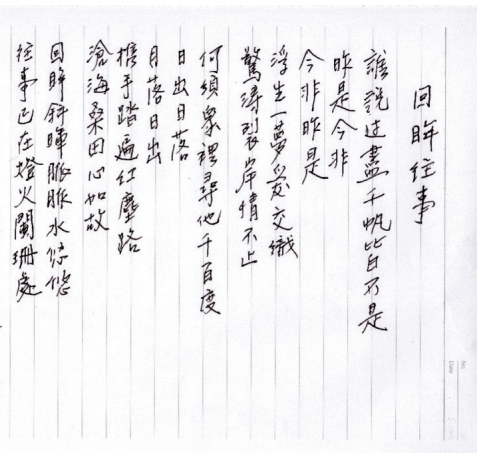 回眸往事
誰説过盡千帆皆不是
昨是今非
今非昨是
浮生一夢爱交織
驚涛裂岸情不止
何須眾裡尋他千百度
日出日落
月落日出
携手踏遍红塵路
滄海桑田心如故
回眸斜暉脈脈水悠悠
往事已在燈火闌珊處
No.
Date